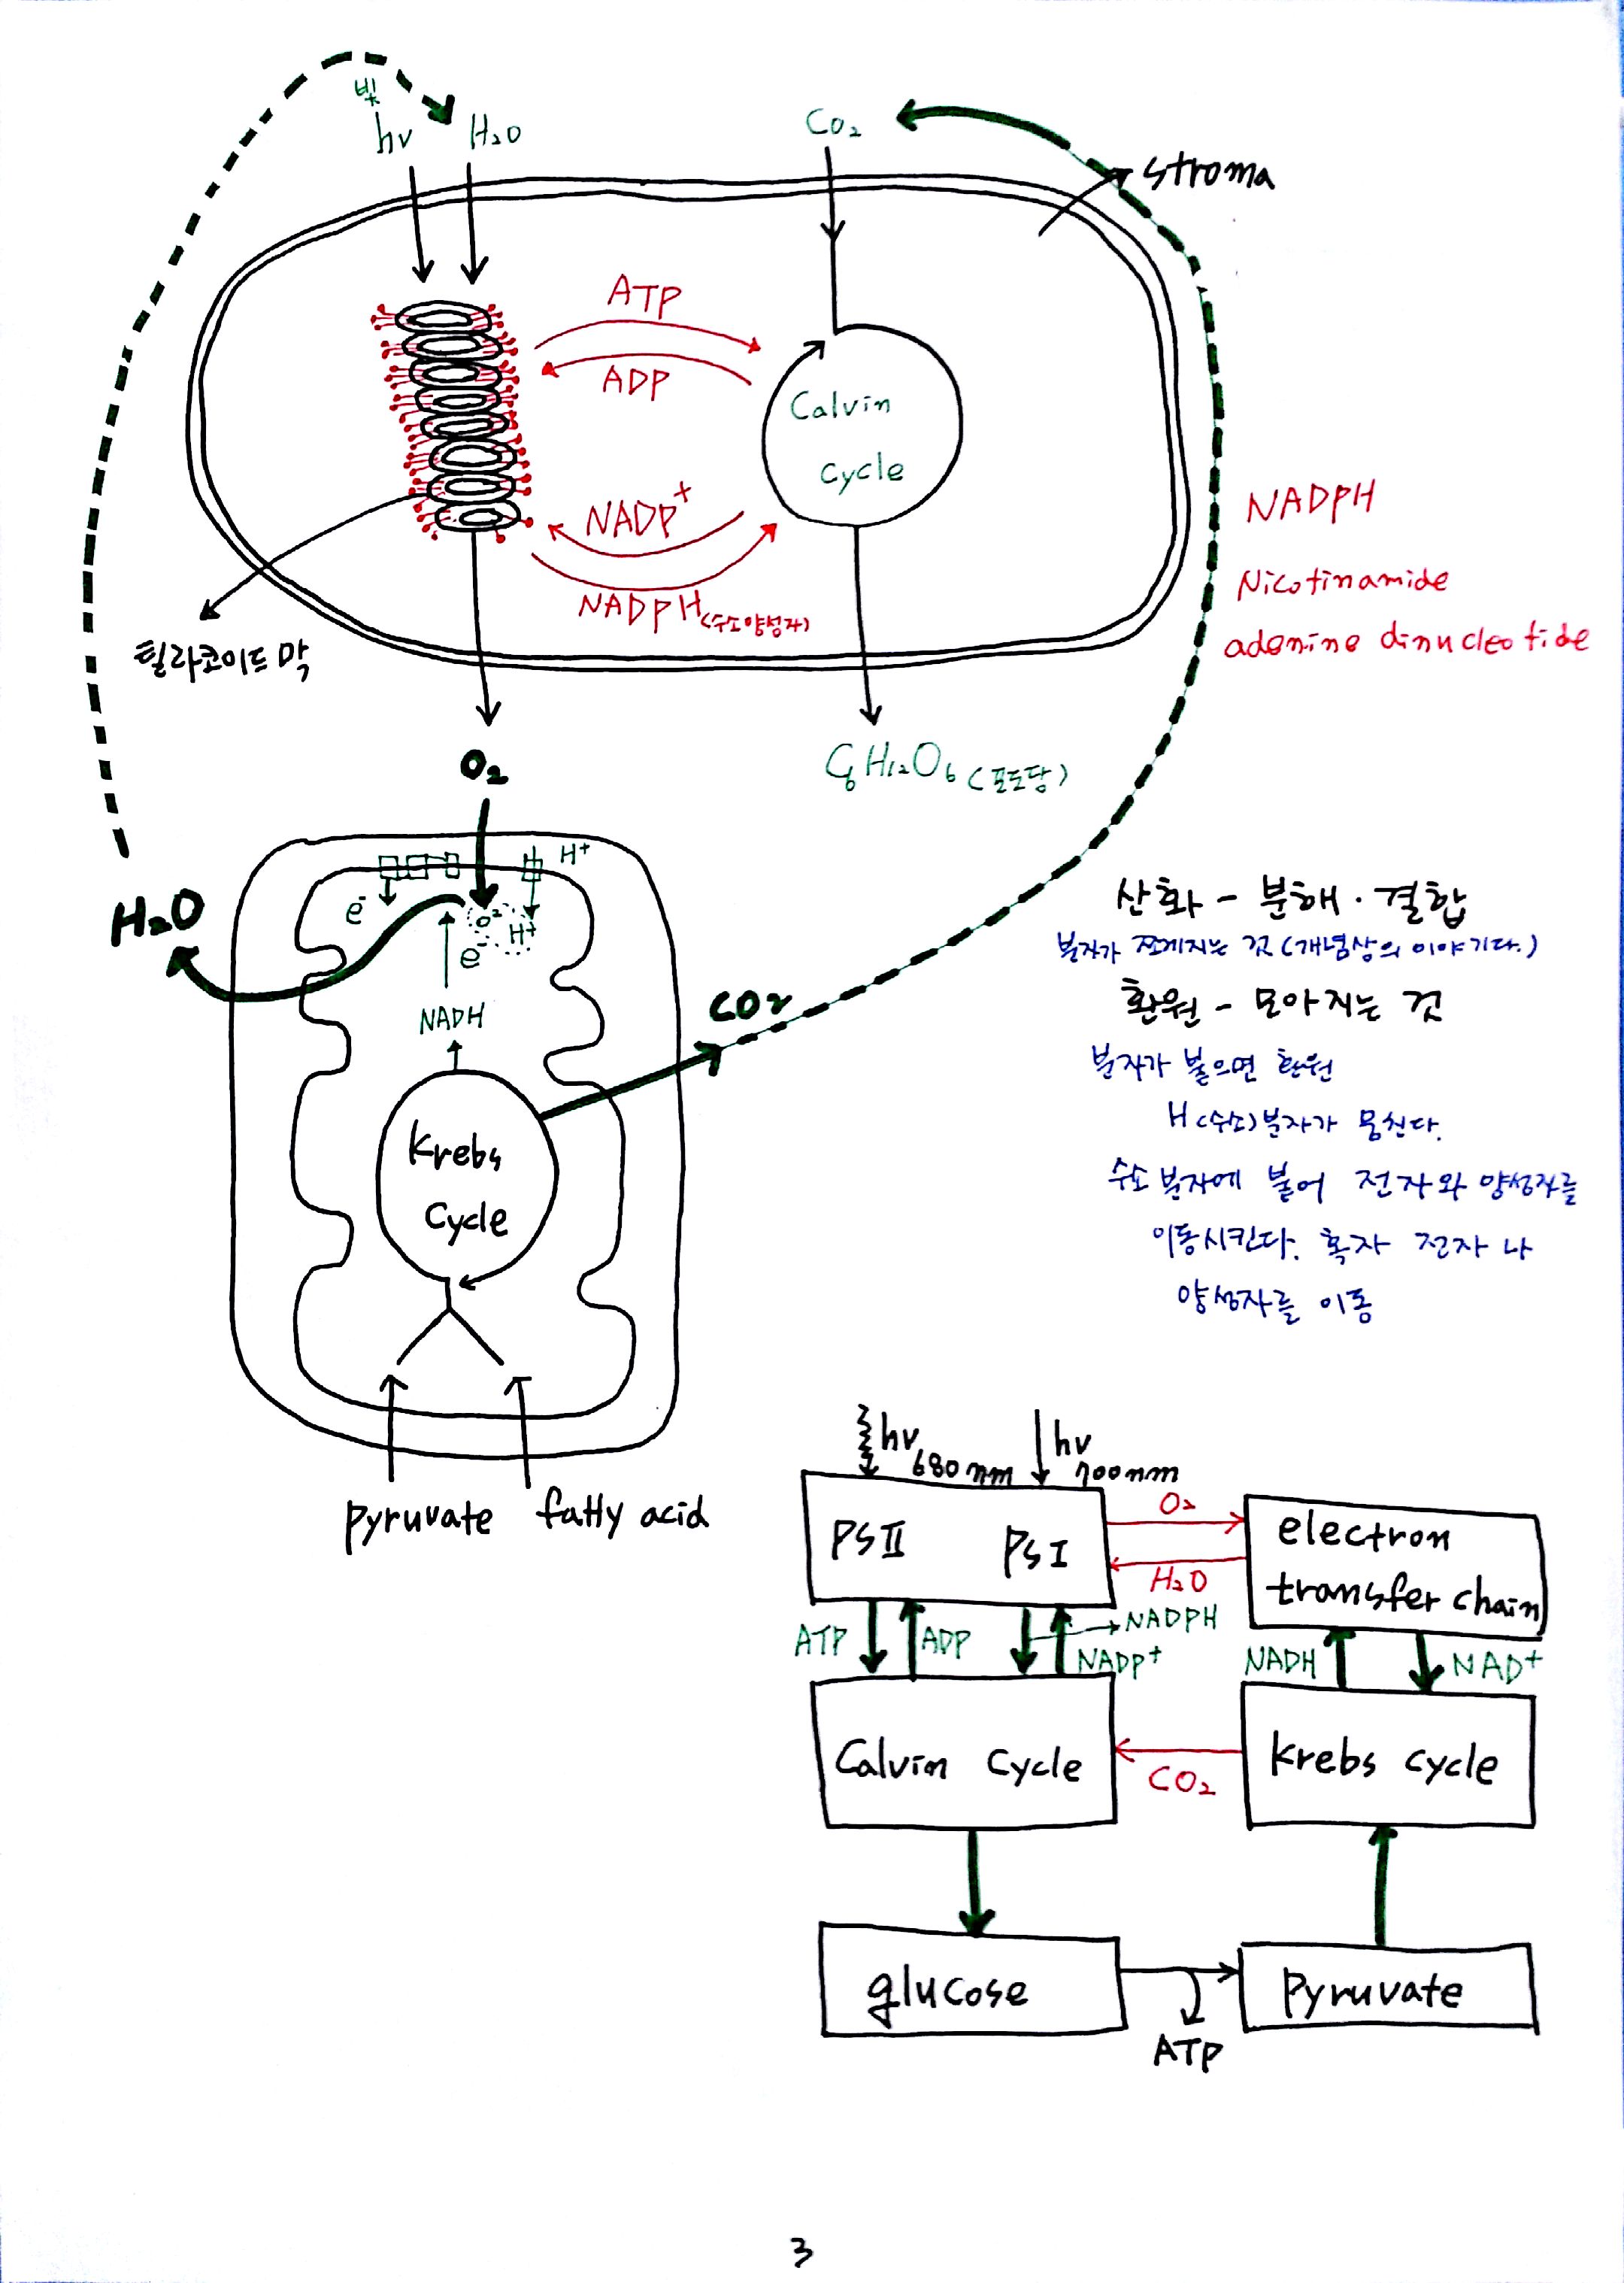 빛
hν H₂O
CO₂
stroma
ATP
ADP
Calvin
Cycle
NADP⁺
NADPH (수소양성자)
틸라코이드 막
NADPH
Nicotinamide
adenine dinucleotide
O₂
C₆H₁₂O₆ (포도당)
H⁺
e⁻
O²⁻
H⁺
e⁻
H₂O
NADH
CO₂
Krebs
Cycle
pyruvate fatty acid
산화 - 분해 · 결합
분자가 쪼개지는 것 (개념상의 이야기다.)
환원 - 모아지는 것
분자가 붙으면 환원
H (수소) 분자가 뭉친다.
수소 분자에 붙어 전자와 양성자를
이동시킨다. 혹자 전자 나
양성자를 이동
hν 680nm hν 700nm
PSⅡ PSⅠ
O₂
H₂O
electron
transfer chain
ATP ADP NADPH
NADP⁺
NADH NAD⁺
Calvin Cycle
CO₂
Krebs cycle
glucose
ATP
Pyruvate
3